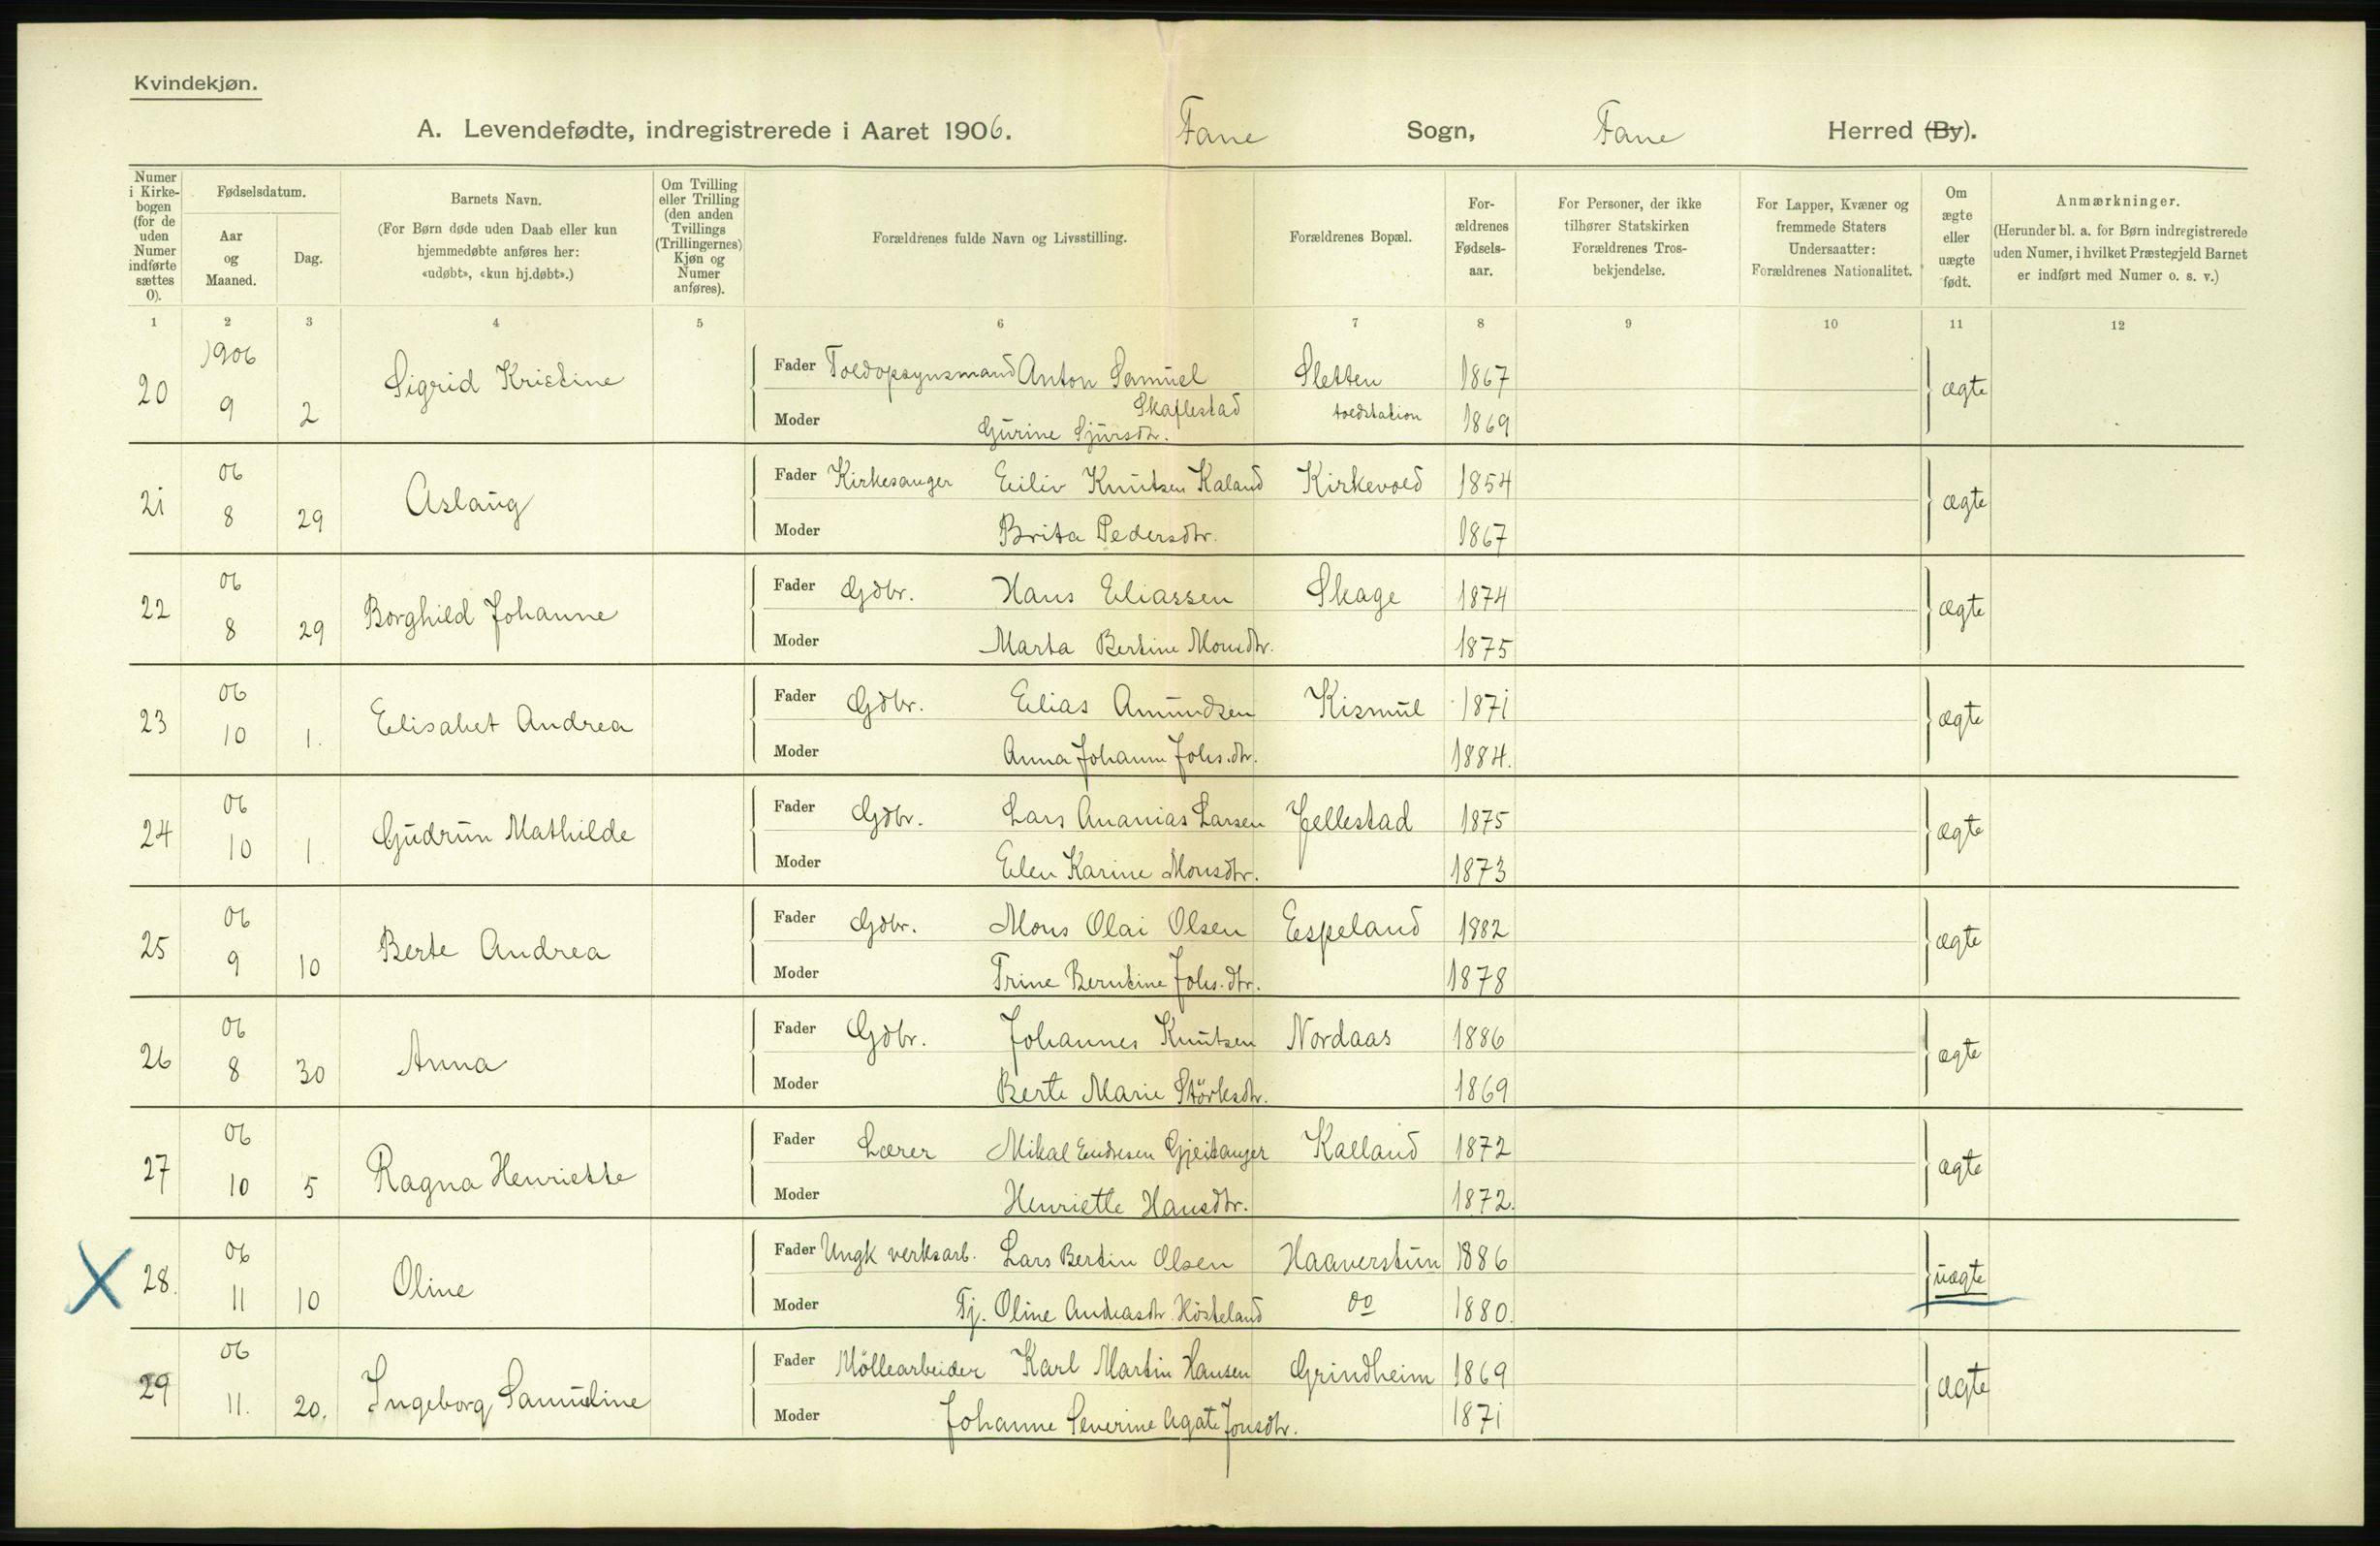 Kvindekjøn.
A. Levendefødte, indregistrerede i Aaret 1906. Fane Sogn, Fane Herred (By).
Numer i Kirkebogen (for de uden Numer indførte sættes 0).
Fødselsdatum.
Aar og Maaned.
Dag.
Barnets Navn.
(For Børn døde uden Daab eller kun hjemmedøbte anføres her: «udøbt», «kun hj.døbt».)
Om Tvilling eller Trilling (den anden Tvillings (Trillingernes) Kjøn og Numer anføres).
Forældrenes fulde Navn og Livsstilling.
Forældrenes Bopæl.
Forældrenes Fødselsaar.
For Personer, der ikke tilhører Statskirken Forældrenes Trosbekjendelse.
For Lapper, Kvæner og fremmede Staters Undersaatter: Forældrenes Nationalitet.
Om ægte eller uægte født.
Anmærkninger.
(Herunder bl. a. for Børn indregistrerede uden Numer, i hvilket Præstegjeld Barnet er indført med Numer o. s. v.)
1 2 3 4 5 6 7 8 9 10 11 12
1906
20 9 2 Sigrid Kristine Fader Toldopsynsmand Anton Samuel Skaflestad Sletten 1867 ægte
Moder Gurine Sjursdtr. toldstation 1869
06
21 8 29 Aslaug Fader Kirkesanger Eiliv Knutsen Kaland Kirkevold 1854 ægte
Moder Brita Pedersdtr. 1867
06
22 8 29 Borghild Johanne Fader Gdbr. Hans Eliassen Skage 1874 ægte
Moder Marta Bertine Monsdtr. 1875
06
23 10 1. Elisabet Andrea Fader Gdbr. Elias Amundsen Kismul 1871 ægte
Moder Anna Johanne Johs.dtr. 1884.
06
24 10 1. Gudrun Mathilde Fader Gdbr. Lars Ananias Larsen Hjellestad 1875 ægte
Moder Elen Karine Monsdtr. 1873
06
25 9 10 Berte Andrea Fader Gdbr. Mons Olai Olsen Espeland 1882 ægte
Moder Trine Berntine Johs.dtr. 1878
06
26 8 30 Anna Fader Gdbr. Johannes Knutsen Nordaas 1886 ægte
Moder Berte Marie Störksdtr. 1869
06
27 10 5 Ragna Henriette Fader Lærer Mikal Endresen Gjeitanger Kalland 1872 ægte
Moder Henriette Hansdtr. 1872.
06
X 28. 11 10 Oline Fader Ungk verksarb. Lars Bertin Olsen Haaverstun 1886 uægte
Moder Tj. Oline Andreasdtr. Hösteland do 1880.
06
29 11. 20. Ingeborg Samueline Fader Möllearbeider Karl Martin Hansen Grindheim 1869 ægte
Moder Johanne Severine Agate Jonsdtr. 1871